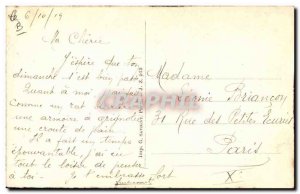 6/10/19
Ma Chérie
J'espère que ton
dimanche s'est bien passé
Quant à moi j'ai fait
Comme un rat dans
une armoire à grignoter
une croute de pain.
Il a fait un temps
épouvantable j'ai eu
tout le loisir de penser
à toi. Je t'embrasse fort
Madame
Briançon
31 Rue des Petites Écuries
Paris
X
CPRARAMA